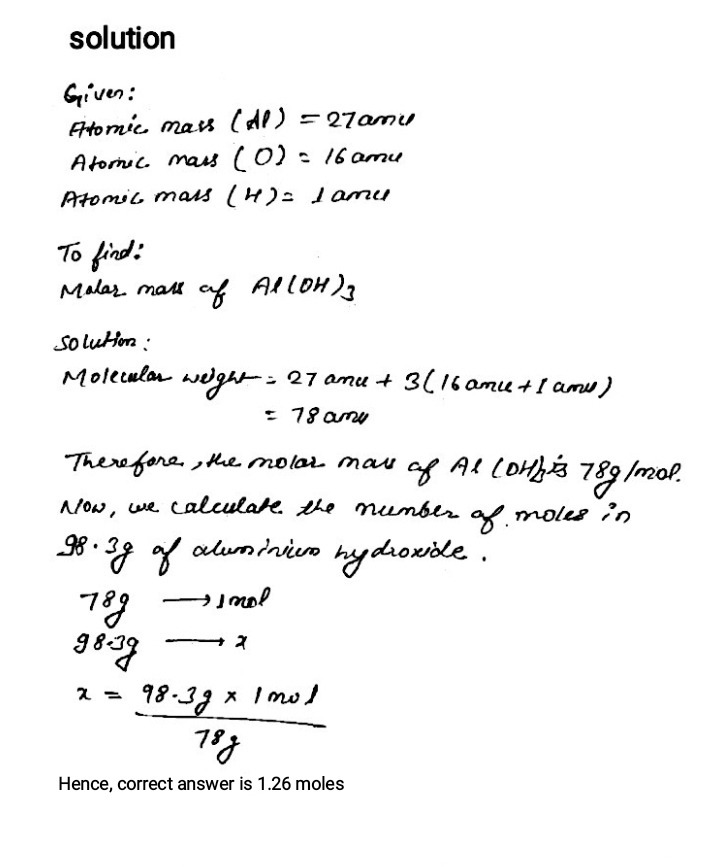 solution
Given:
Atomic mass (Al) = 27amu
Atomic mass (O) = 16 amu
Atomic mass (H) = 1 amu
To find:
Molar mass of Al(OH)3
Solution:
Molecular weight = 27 amu + 3(16 amu + 1 amu)
= 78 amu
Therefore, the molar mass of Al(OH)3 is 78g/mol.
Now, we calculate the number of moles in
98.3g of aluminium hydroxide.
78g → 1 mol
98.3g → x
x = 98.3g x 1 mol
78g
Hence, correct answer is 1.26 moles